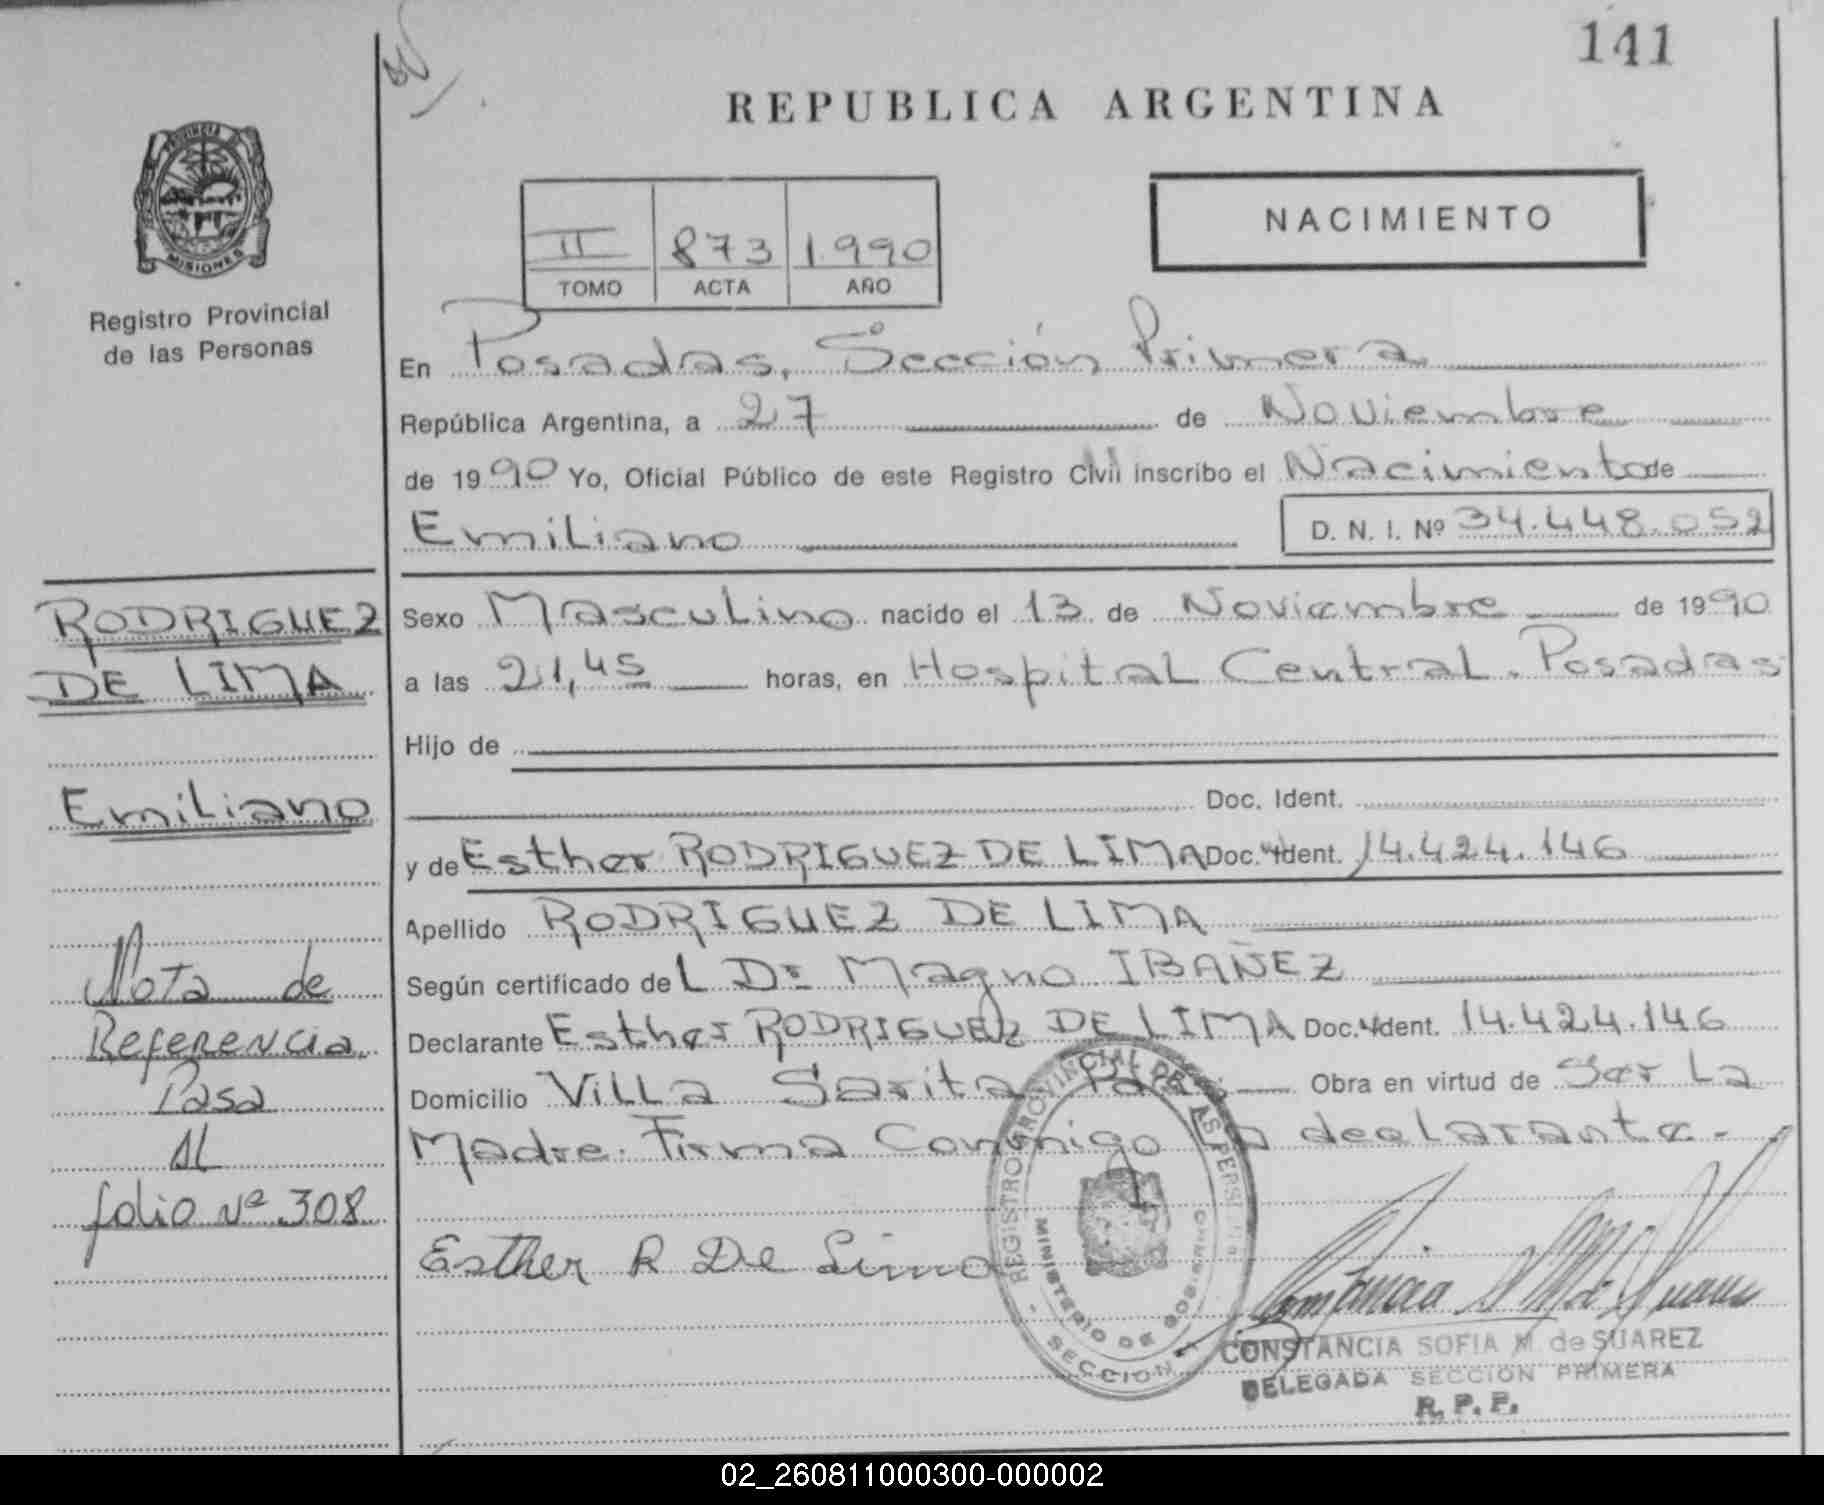 141
REPUBLICA ARGENTINA
PROVINCIA DE
MISIONES
Registro Provincial
de las Personas
II 873 1.990
TOMO ACTA AÑO
NACIMIENTO
En Posadas, Sección Primera
República Argentina, a 27 de Noviembre
de 1990 Yo, Oficial Público de este Registro Civil inscribo el Nacimiento de
Emiliano D. N. I. Nº 34.448.052
RODRIGUEZ
DE LIMA
Emiliano
Nota de
Referencia
Pasa
Al
folio Nº 308
Sexo Masculino nacido el 13 de Noviembre de 1990
a las 21,45 horas, en Hospital Central. Posadas
Hijo de
Doc. Ident.
y de Esther RODRIGUEZ DE LIMA Doc. Ident. 14.424.146
Apellido RODRIGUEZ DE LIMA
Según certificado de L Dr Magno IBAÑEZ
Declarante Esther RODRIGUEZ DE LIMA Doc. Ident. 14.424.146
Domicilio Villa Sarita Obra en virtud de Ser La
Madre. Firma Conmigo La declarante.
Esther R De Lima
REGISTRO PROVINCIAL DE LAS PERSONAS
MINISTERIO DE GOBIERNO
SECCION 1
CONSTANCIA SOFIA M. de SUAREZ
DELEGADA SECCION PRIMERA
R. P. P.
02_260811000300-000002